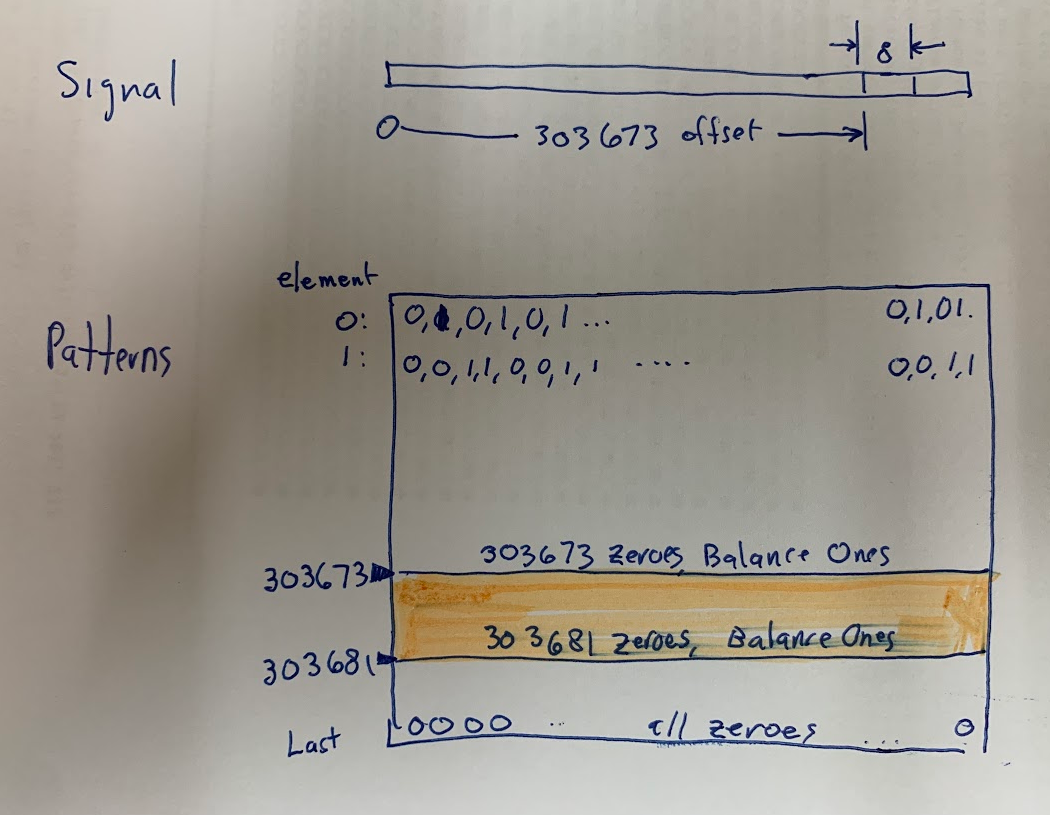 Signal
8
0 303673 offset
element
Patterns
0: 0,1,0,1,0,1... 0,1,01.
1: 0,0,1,1,0,0,1,1 .... 0,0,1,1
303673 zeroes, Balance Ones
303673
303681 zeroes, Balance Ones
303681
Last 0000 ... all zeroes ... 0